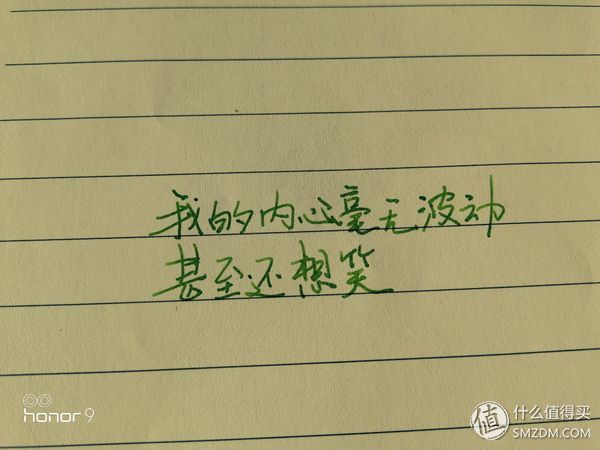 我的内心毫无波动
甚至还想笑
honor 9
值 什么值得买
SMZDM.COM